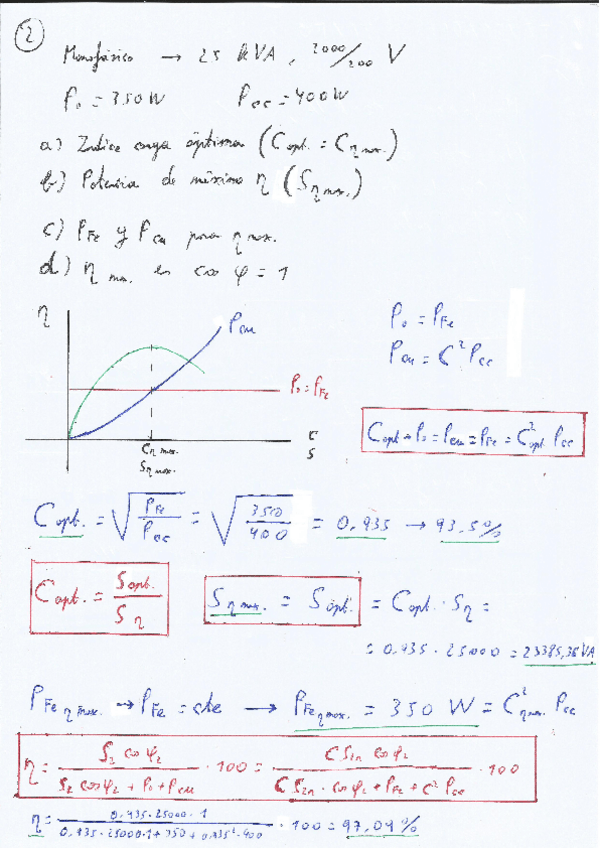 2
Monofásico → 25 kVA, 2000/200 V
P₀ = 350W Pcc = 400W
a) Índice carga óptima (Copt. = Cη max.)
b) Potencia de máximo η (Sη max.)
c) PFe y Pcu para η max.
d) η max. en cos φ = 1
η
Pcu
P₀ = PFe
C
S
Cη max.
Sη max.
P₀ = PFe
Pcu = C² Pcc
Copt → P₀ = Pcu = PFe = C²opt. Pcc
Copt. = √(PFe/Pcc) = √(350/400) = 0,935 → 93,5%
Copt. = Sopt./Sη
Sη max. = Sópt. = Copt. · Sη =
= 0,935 · 25000 = 23385,36 VA
PFe η max. → PFe = cte → PFe η max. = 350 W = C²η max. Pcc
η = S₂ cos φ₂ / (S₂ cos φ₂ + P₀ + Pcu) · 100 = C S₂n cos φ₂ / (C S₂n · cos φ₂ + PFe + C² Pcc) · 100
η = 0,935 · 25000 · 1 / (0,935 · 25000 · 1 + 350 + 0,935² · 400) · 100 = 97,09%